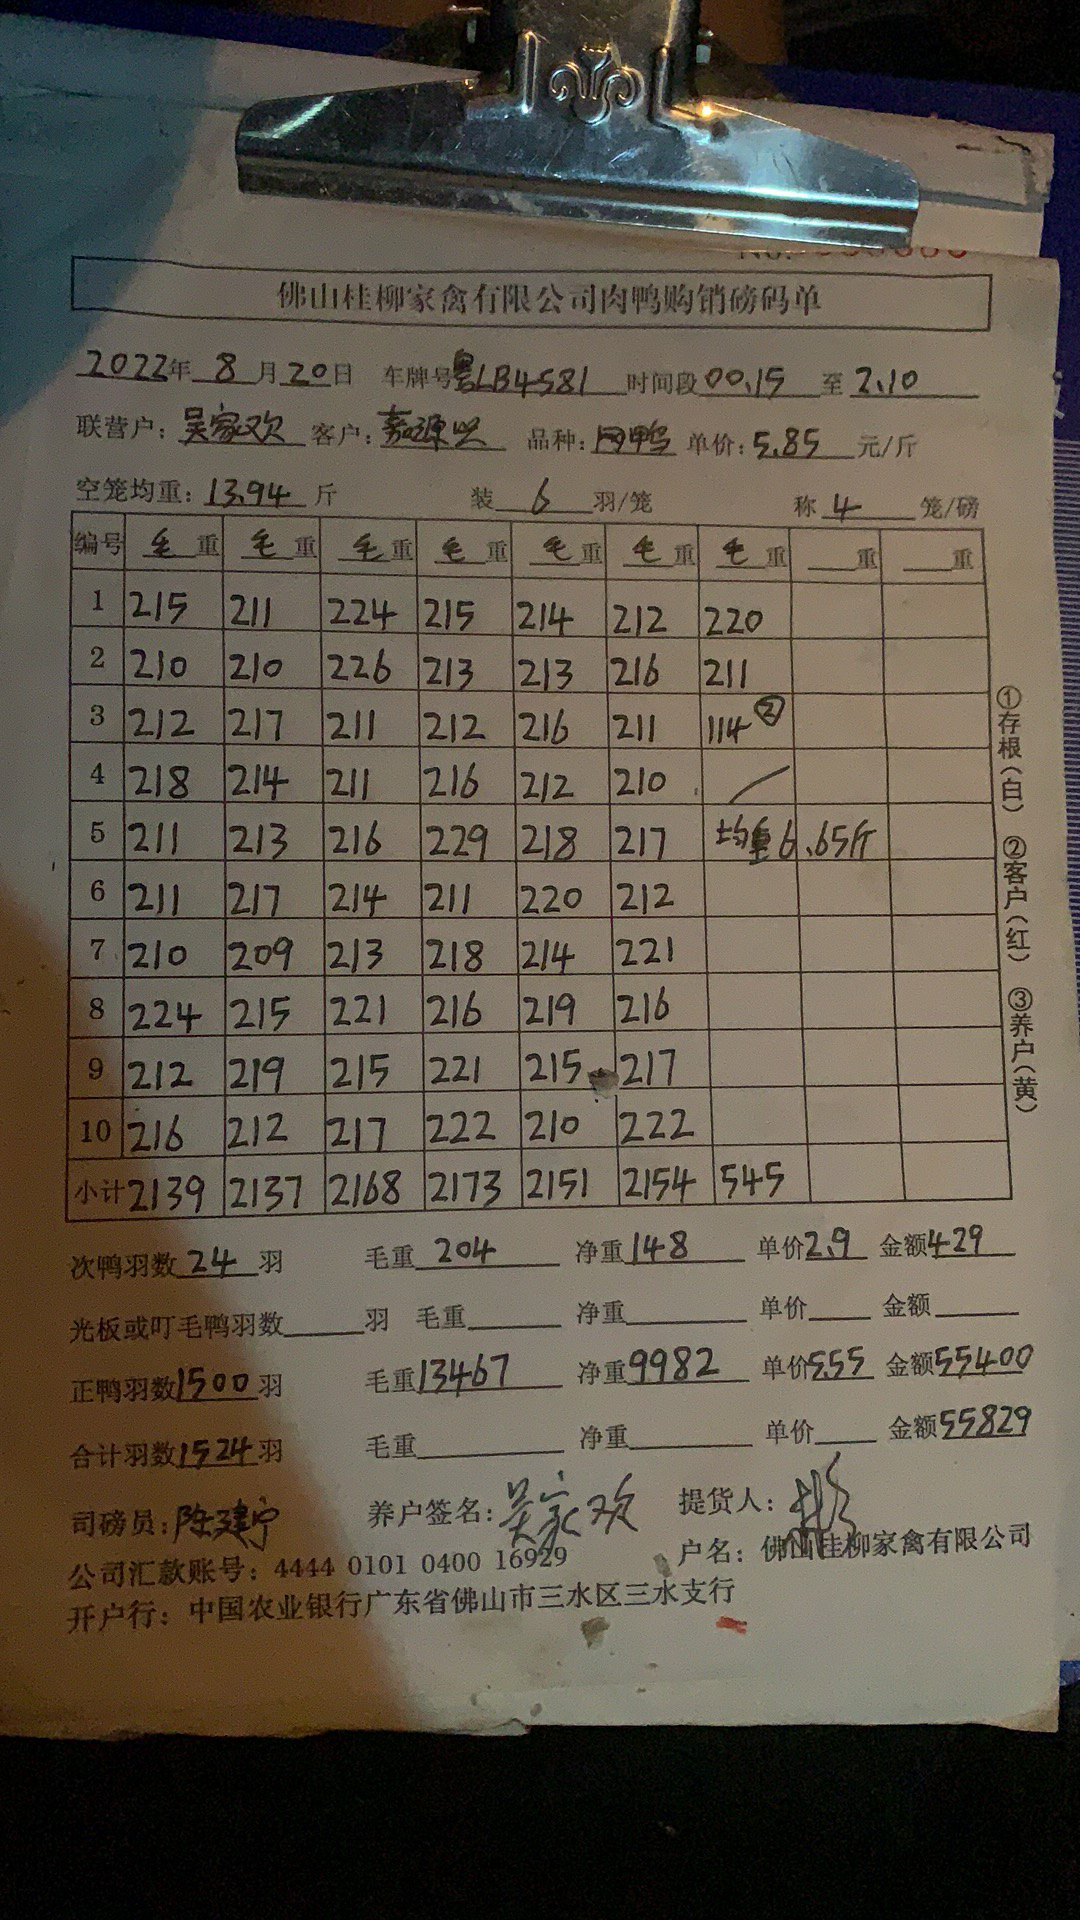 佛山桂柳家禽有限公司肉鸭购销磅码单
2022年 8 月 20 日 车牌号粤LB4581 时间段00.15 至 2.10
联营户: 吴家欢 客户: 嘉源兴 品种: 网鸭 单价: 5.85 元/斤
空笼均重: 13.94 斤 装 6 羽/笼 称 4 笼/磅
编号 毛重 毛重 毛重 毛重 毛重 毛重 毛重 重 重
1 215 211 224 215 214 212 220
2 210 210 226 213 213 216 211
3 212 217 211 212 216 211 114 ②
4 218 214 211 216 212 210
5 211 213 216 229 218 217 均重6.65斤
6 211 217 214 211 220 212
7 210 209 213 218 214 221
8 224 215 221 216 219 216
9 212 219 215 221 215 217
10 216 212 217 222 210 222
小计 2139 2137 2168 2173 2151 2154 545
次鸭羽数 24 羽 毛重 204 净重 148 单价 2.9 金额 429
光板或叮毛鸭羽数 羽 毛重 净重 单价 金额
正鸭羽数 1500 羽 毛重 13467 净重 9982 单价 5.55 金额 55400
合计羽数 1524 羽 毛重 净重 单价 金额 55829
司磅员: 陈建宁 养户签名: 吴家欢 提货人:
公司汇款账号: 4444 0101 0400 16929 户名: 佛山桂柳家禽有限公司
开户行: 中国农业银行广东省佛山市三水区三水支行
①存根(白) ②客户(红) ③养户(黄)